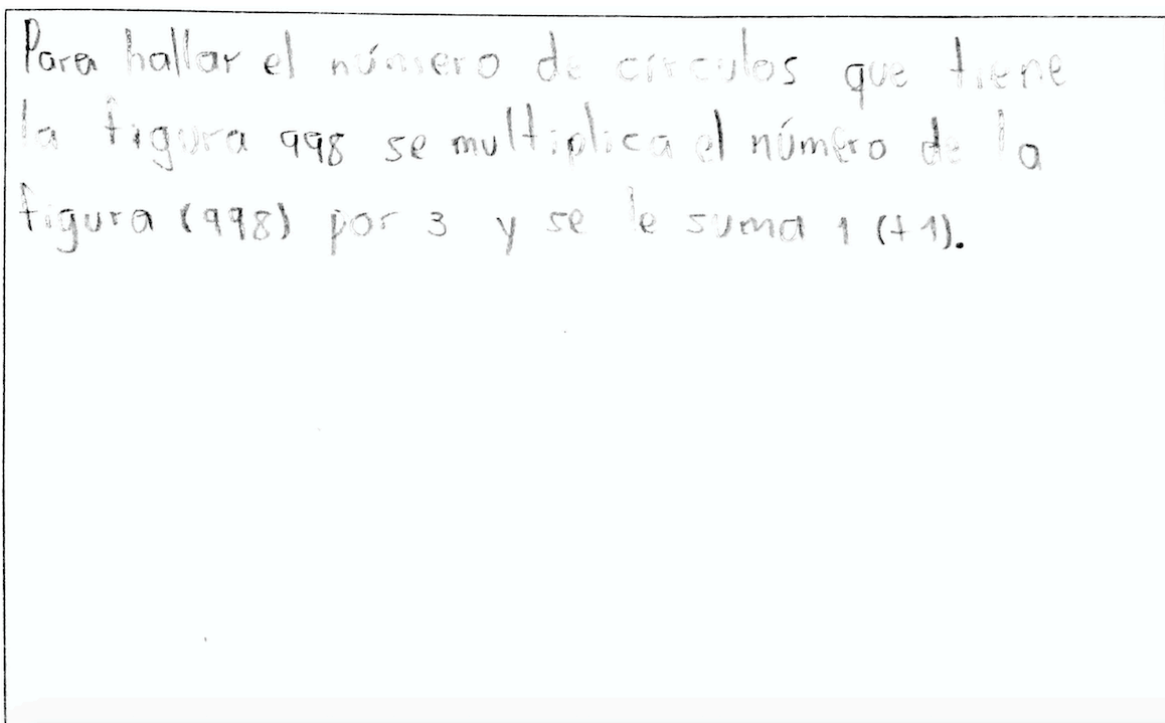 Para hallar el número de círculos que tiene
la figura 998 se multiplica el número de la
figura (998) por 3 y se le suma 1 (+1).